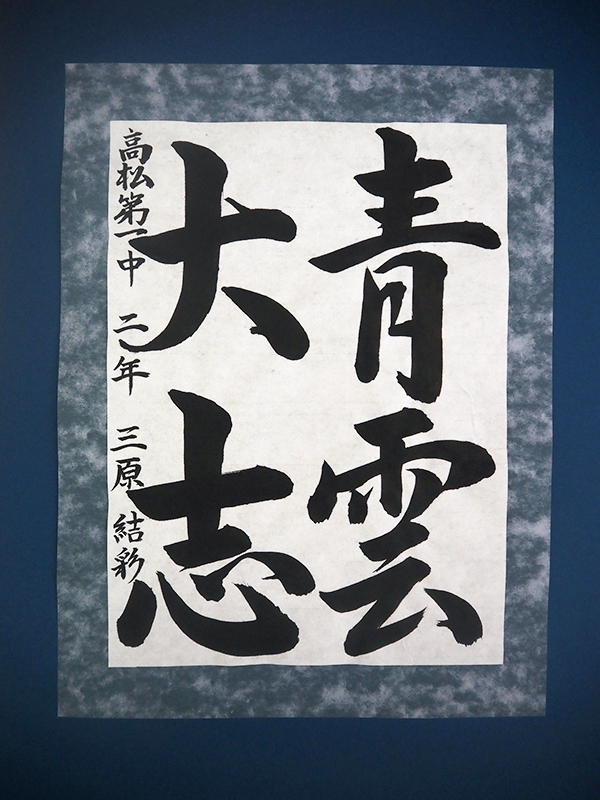 青雲
大志
高松第一中 二年 三原 結彩